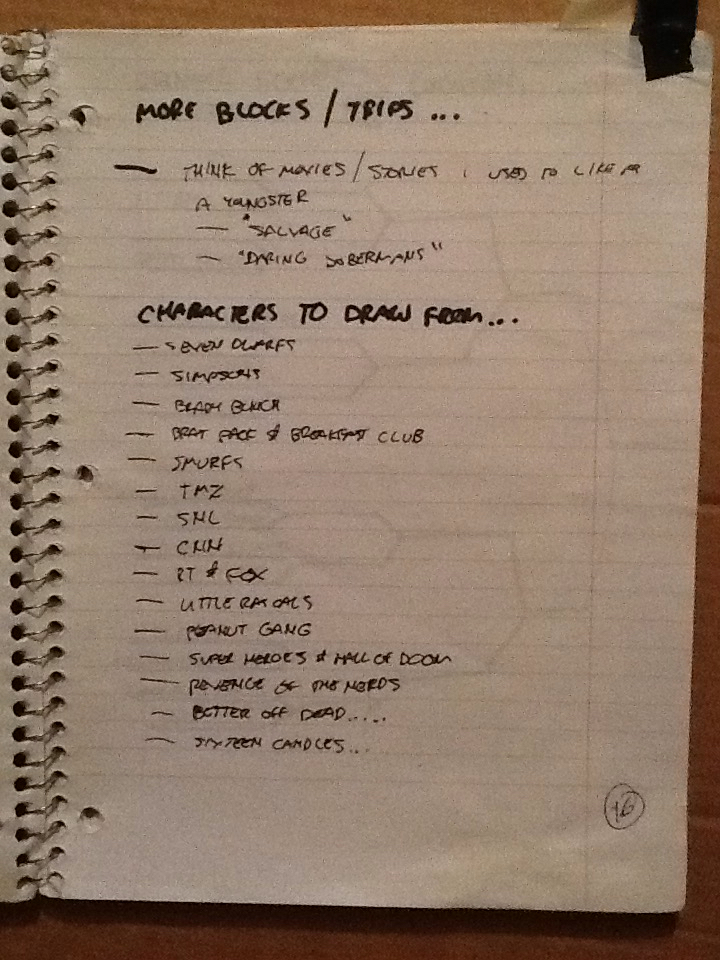 MORE BLOCKS / TRIPS ...
— THINK OF MOVIES / STORIES I USED TO LIKE AS
A YOUNGSTER
— "SALVAGE"
— "DARING DOBERMANS"
CHARACTERS TO DRAW FROM...
— SEVEN DWARFS
— SIMPSONS
— BRADY BUNCH
— BRAT PACK & BREAKFAST CLUB
— SMURFS
— TMZ
— SNL
— CNN
— RT & FOX
— LITTLE RASCALS
— PEANUT GANG
— SUPER HEROES & HALL OF DOOM
— REVENGE OF THE NERDS
— BETTER OFF DEAD.....
— SIXTEEN CANDLES...